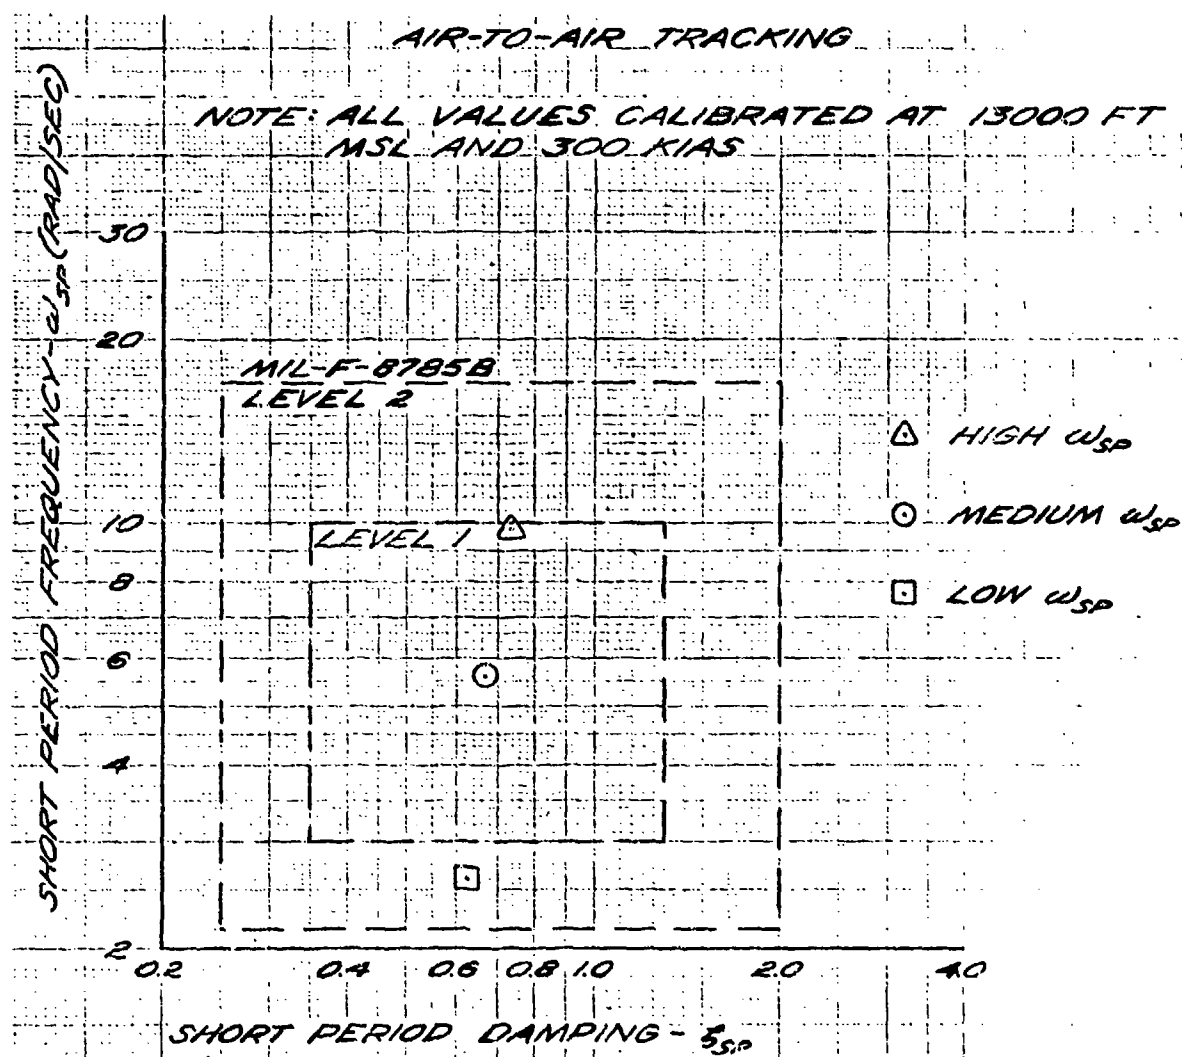 AIR-TO-AIR TRACKING
NOTE: ALL VALUES CALIBRATED AT 13000 FT
MSL AND 300 KIAS
SHORT PERIOD FREQUENCY-ωSP (RAD/SEC)
30
20
10
8
6
4
2
MIL-F-8785B
LEVEL 2
LEVEL 1
HIGH ωSP
MEDIUM ωSP
LOW ωSP
0.2 0.4 0.6 0.8 1.0 2.0 4.0
SHORT PERIOD DAMPING - ζSP